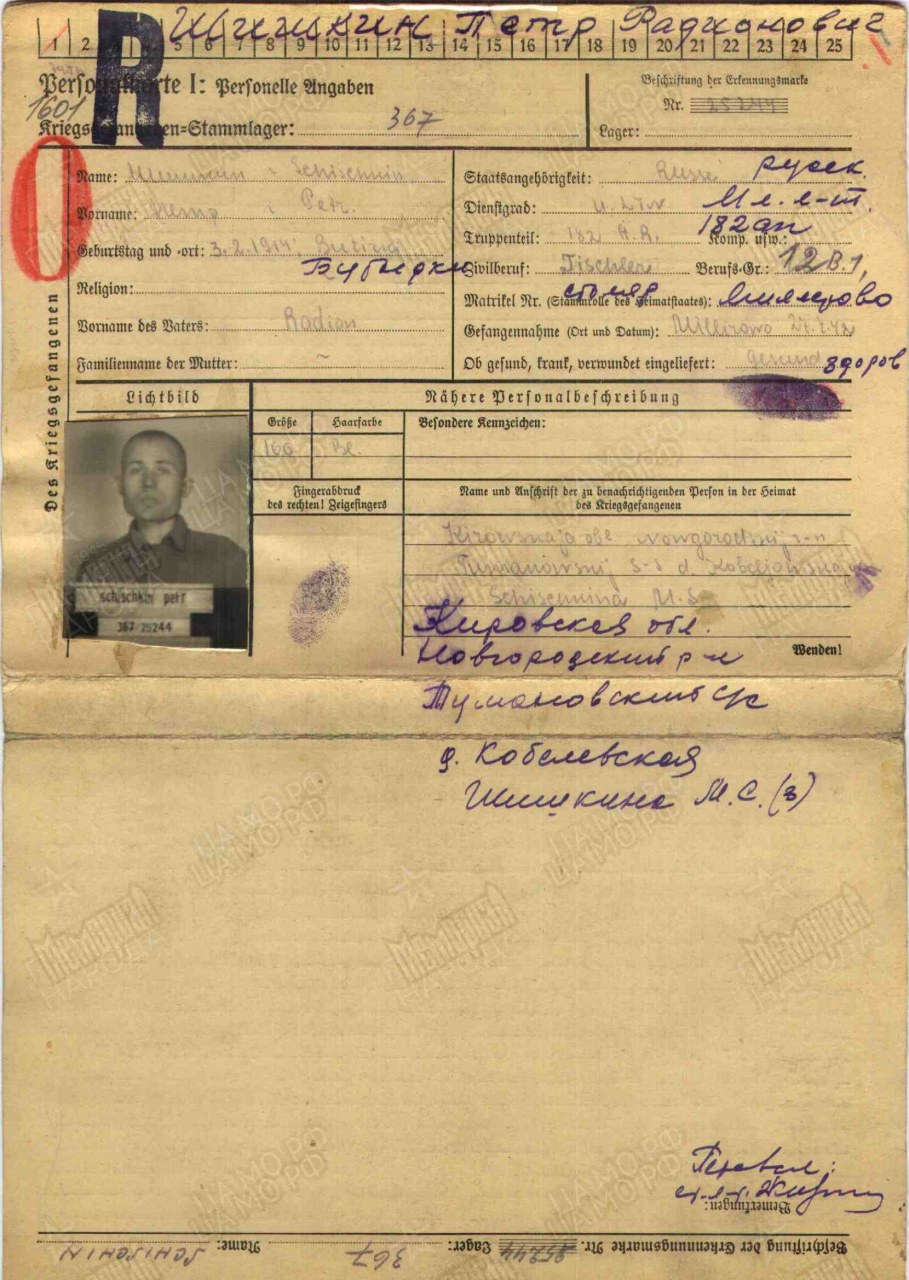 Шишкин Петр Радионович
1 2 3 4 5 6 7 8 9 10 11 12 13 14 15 16 17 18 19 20 21 22 23 24 25
R
Personalkarte I: Personelle Angaben
1601
Kriegsgefangenen-Stammlager: 367
Beschriftung der Erkennungsmarke
Nr. 25244
Lager:
Des Kriegsgefangenen
Name: Schischkin
Vorname: Petr
Geburtstag und -ort: 3.2.1914
Religion:
Vorname des Vaters: Radion
Familienname der Mutter: –
Staatsangehörigkeit: Russe русск.
Dienstgrad: Мл. л-т.
Truppenteil: 182 A.R. 182 ап Komp. usw.:
Zivilberuf: Tischler столяр Berufs-Gr.: 12 B.1,
Matrikel Nr. (Stammrolle des Heimatstaates): Миллерово
Gefangennahme (Ort und Datum): Millerowo
Ob gesund, krank, verwundet eingeliefert: gesund здоров
Lichtbild
Nähere Personalbeschreibung
Größe Haarfarbe
166 Bl.
Besondere Kennzeichen:
Fingerabdruck
des rechten! Zeigefingers
Name und Anschrift der zu benachrichtigenden Person in der Heimat
des Kriegsgefangenen
schischkin petr
367-25244
Kirowskaja obl.
Кировская обл.
Новгородский р-н
Wenden!
Тумановский с/с
д. Кобелевская
Шишкина М.С. (з)
Перевел:
ст. л-т.
Bemerkungen:
Beschriftung der Erkennungsmarke Nr. 25244 Lager: 367 Name: SCHISCHKIN
ЦАМО РФ
Мемориал
НАРОДА